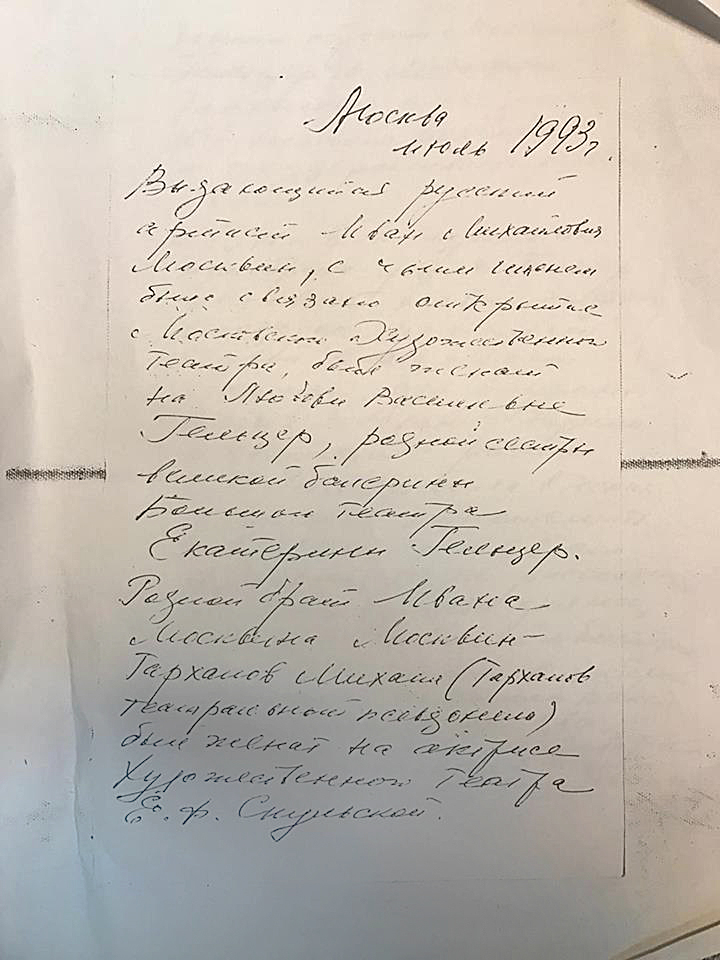 Москва
июль 1993г.
Выдающийся русский
артист Иван Михайлович
Москвин, с чьим именем
было связано открытие
Московского Художественного
театра, был женат
на Любови Васильевне
Гельцер, родной сестры
великой балерины
Большого театра
Екатерины Гельцер.
Родной брат Ивана
Москвина Москвин-
Тарханов Михаил (Тарханов
театральной псевдоним)
был женат на актрисе
Художественного театра
Е. Ф. Скульской.